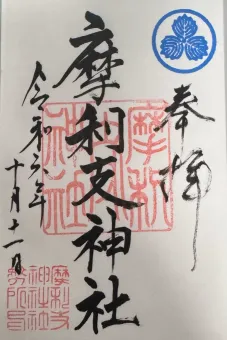 奉拝
摩利支神社
令和六年
十月十一日
摩利支
神社
摩利支
神社社
務所印